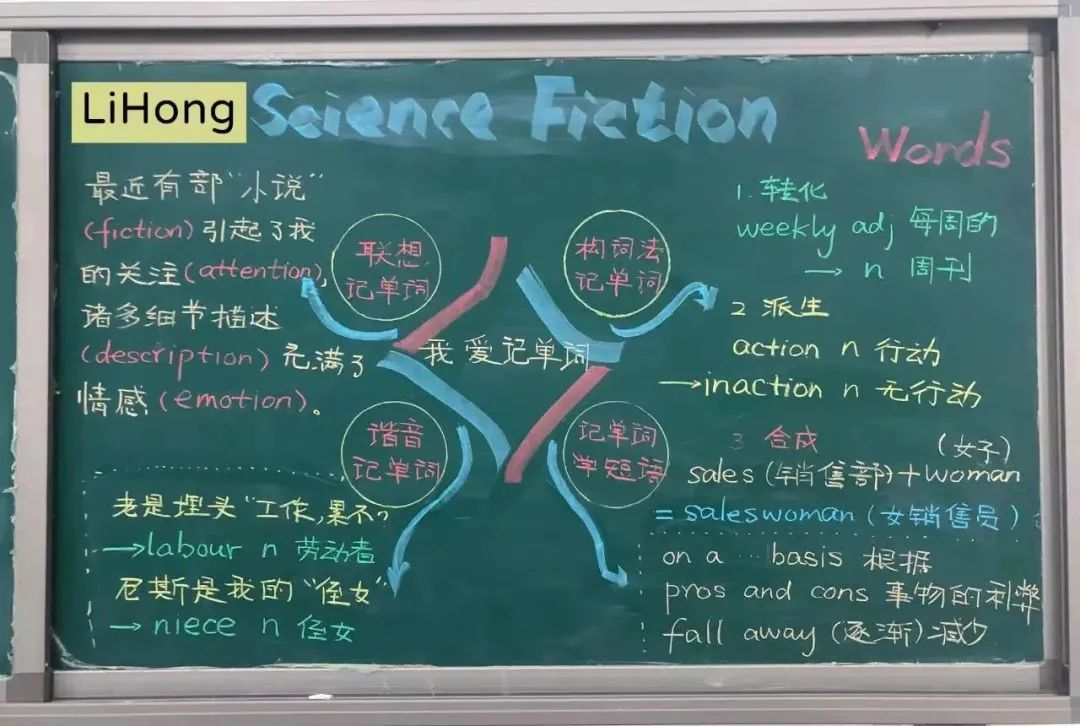 LiHong
Science Fiction
Words
最近有部“小说”
(fiction)引起了我
的关注(attention),
诸多细节描述
(description)充满了
情感(emotion)。
联想
记单词
构词法
记单词
我爱记单词
谐音
记单词
记单词
学短语
老是埋头“工作,累不?
→labour n 劳动者
尼斯是我的“侄女”
→ niece n 侄女
1.转化
weekly adj 每周的
→ n 周刊
2 派生
action n 行动
→inaction n 无行动
3 合成
(女子)
sales(销售部)+woman
=saleswoman(女销售员)
on a ... basis 根据
pros and cons 事物的利弊
fall away (逐渐)减少